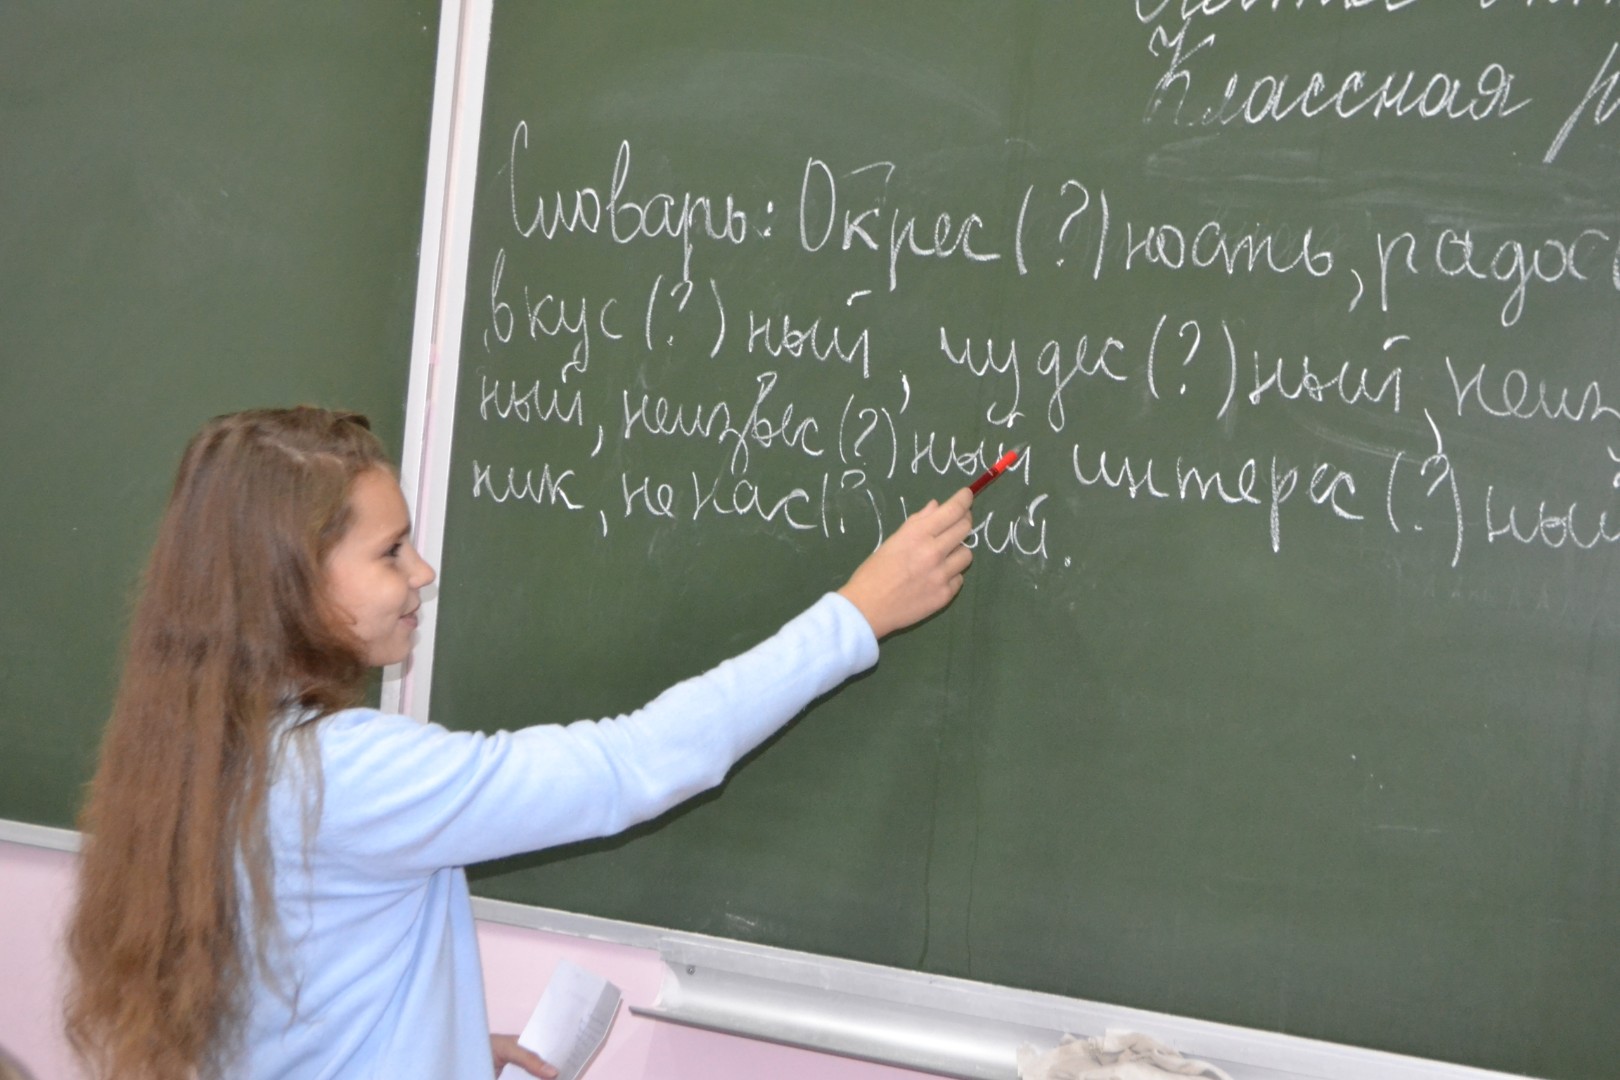 Классная
Словарь: Окрес(?)ность, радос
вкус(?)ный, чудес(?)ный, неиз
ный, неизвес(?)ный интерес(?)ный
ник, ненас(?)ный.